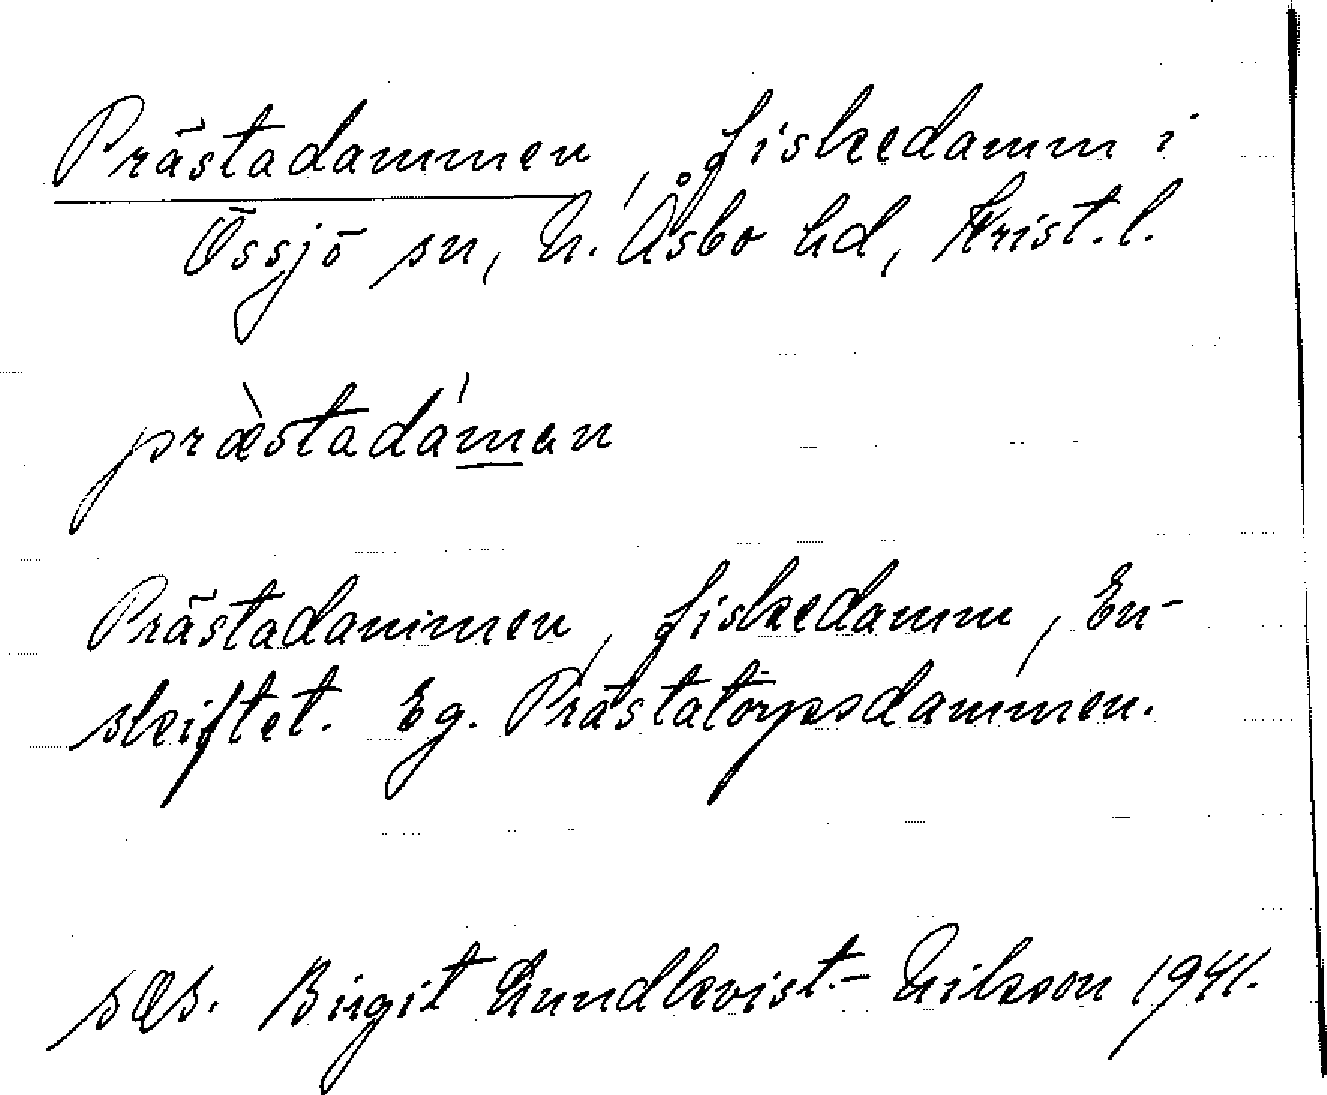 Prästadammen, fiskedamm i
Össjö sn, N. Åsbo hd, Krist. l.
præ̀stadáman
Prästadammen, fiskedamm, En-
skiftet. Eg. Prästatorpsdammen.
Birgit Lundkvist-Nilsson 1941.